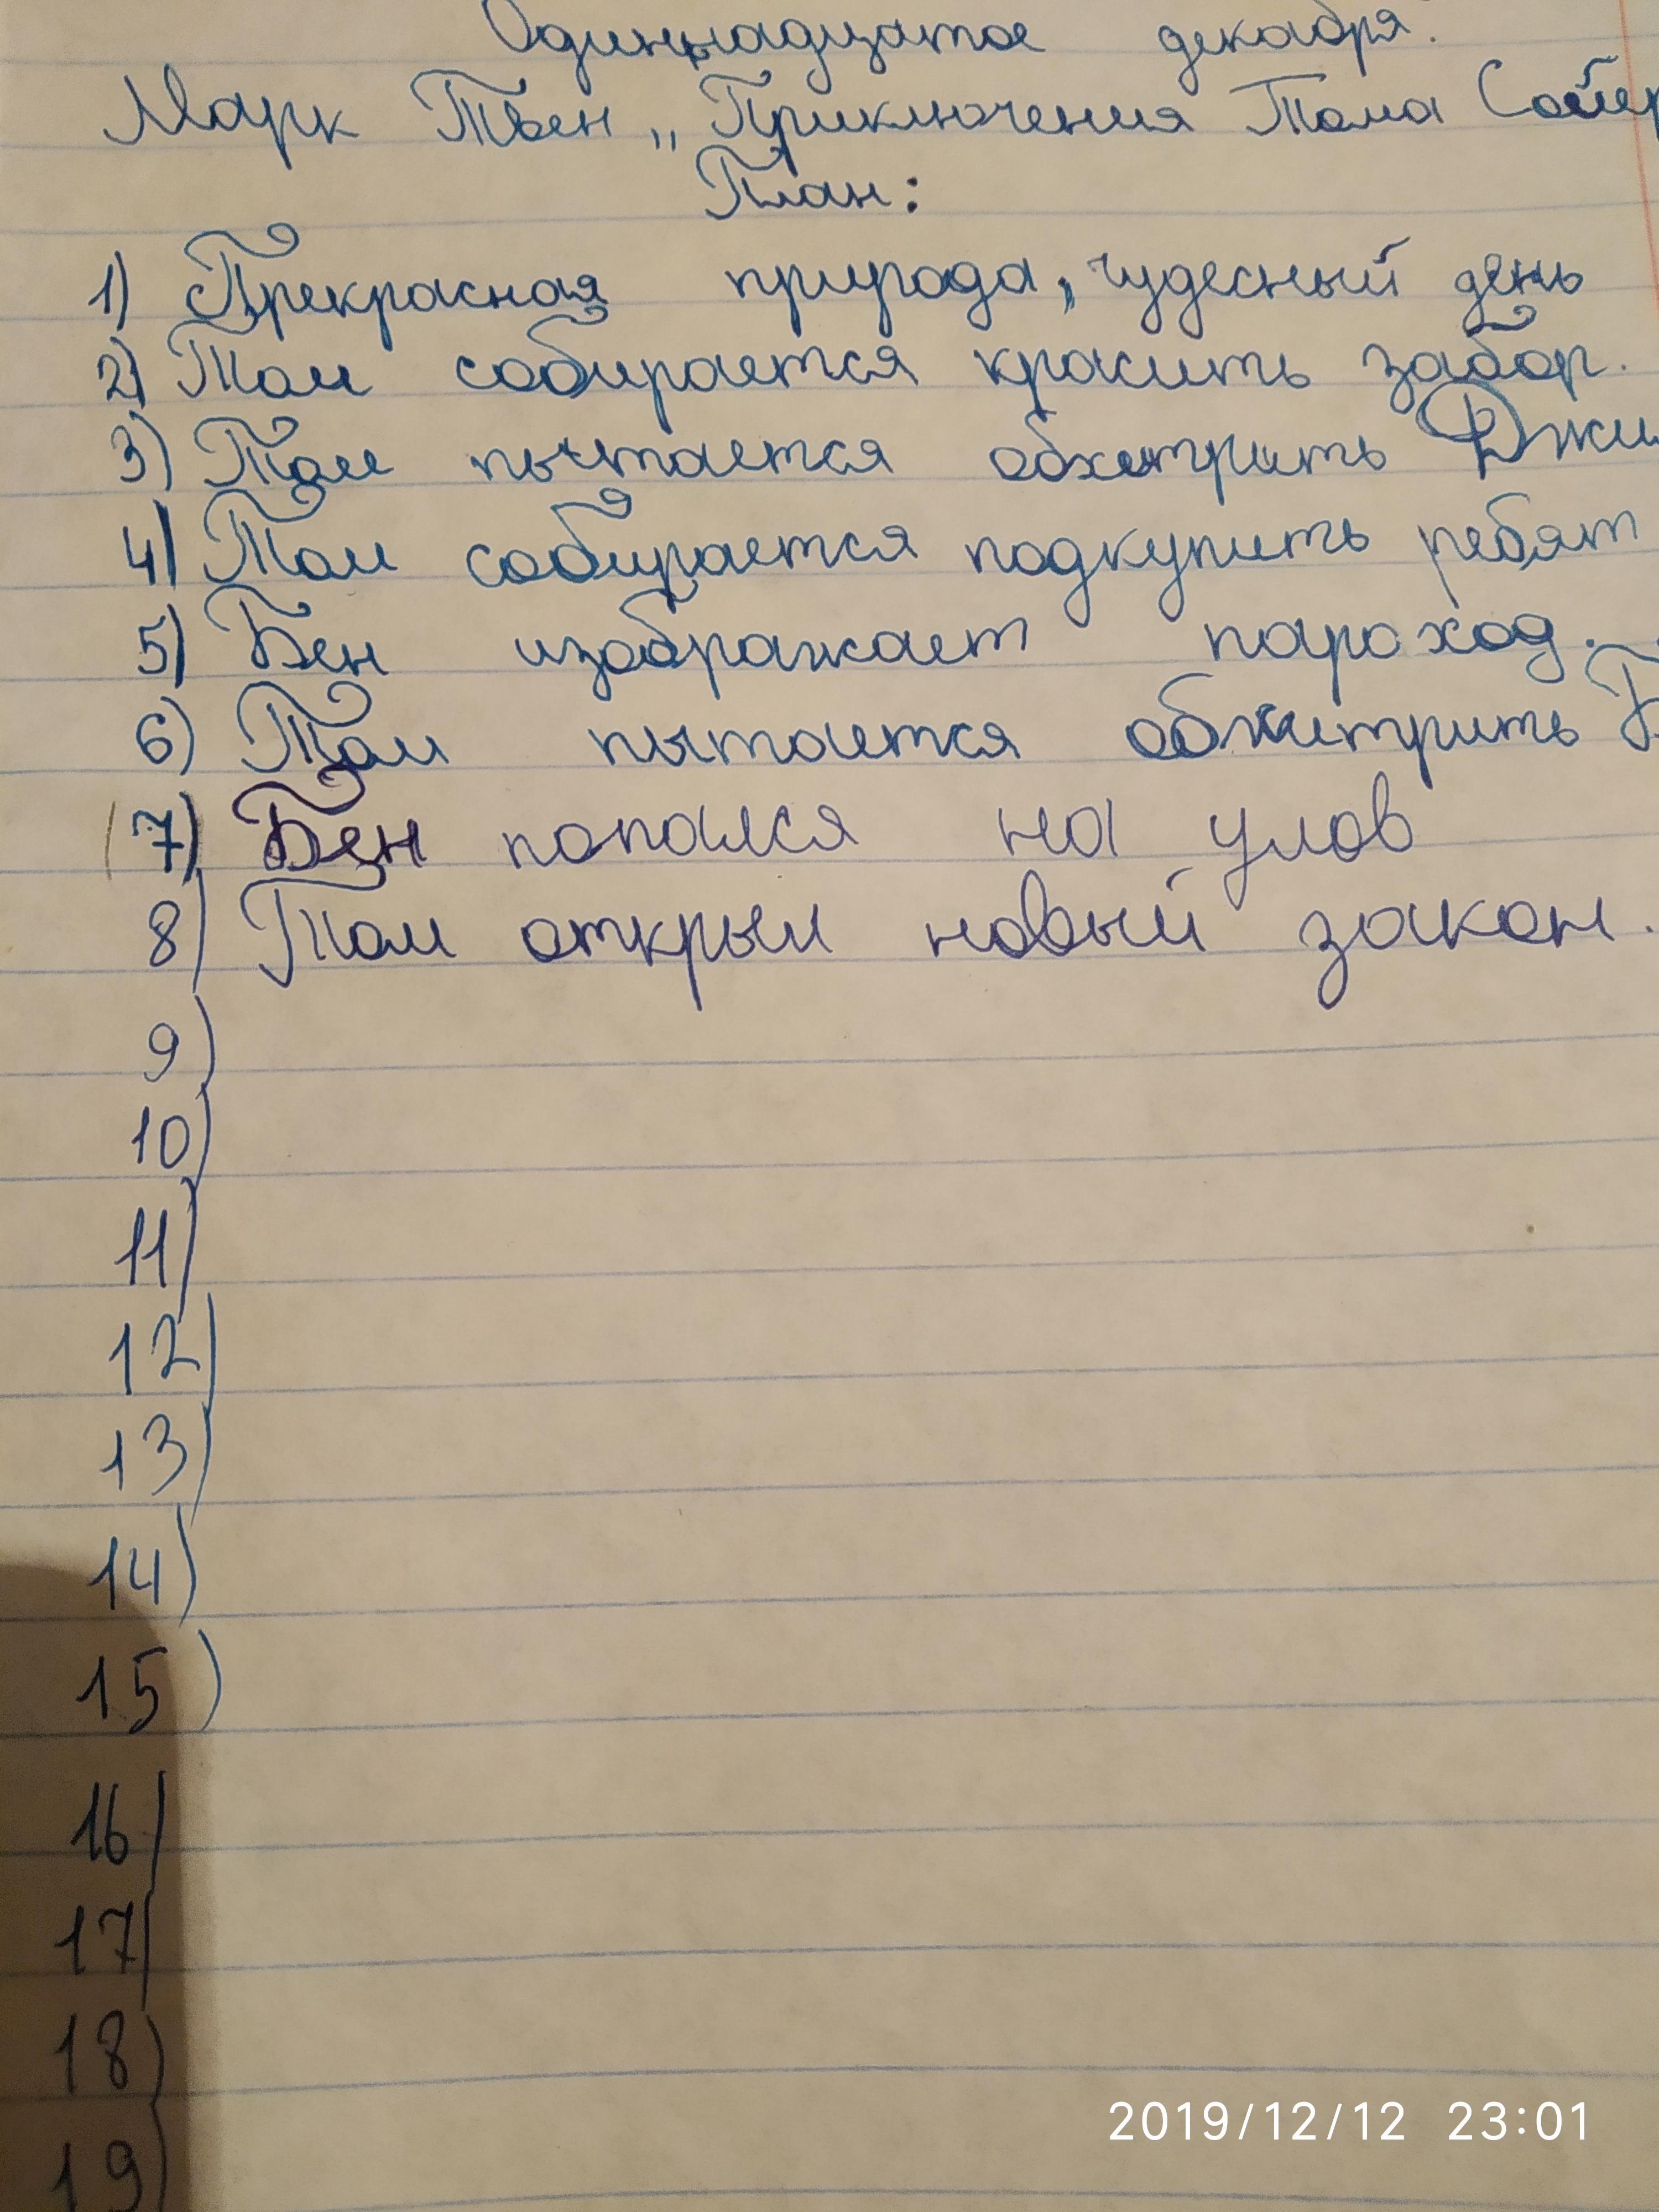 Одиннадцатое декабря.
Марк Твен „Приключения Тома Сойер
План:
1) Прекрасная природа, чудесный день
2) Том собирается красить забор.
3) Том пытается обхитрить Джи
4) Том собирается подкупить ребят
5) Бен изображает пароход.
6) Том пытается обхитрить Б
7) Бен попался на улов
8) Том открыл новый закон.
9)
10)
11)
12)
13)
14)
15)
16)
17)
18)
19)
2019/12/12 23:01